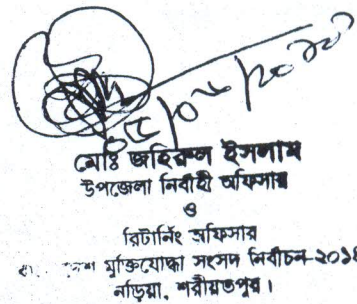 মোঃ জহিরুল ইসলাম
উপজেলা নির্বাহী অফিসার
ও
রিটার্নিং অফিসার
মুক্তিযোদ্ধা সংসদ নির্বাচন-২০১৪
নড়িয়া, শরীয়তপুর।